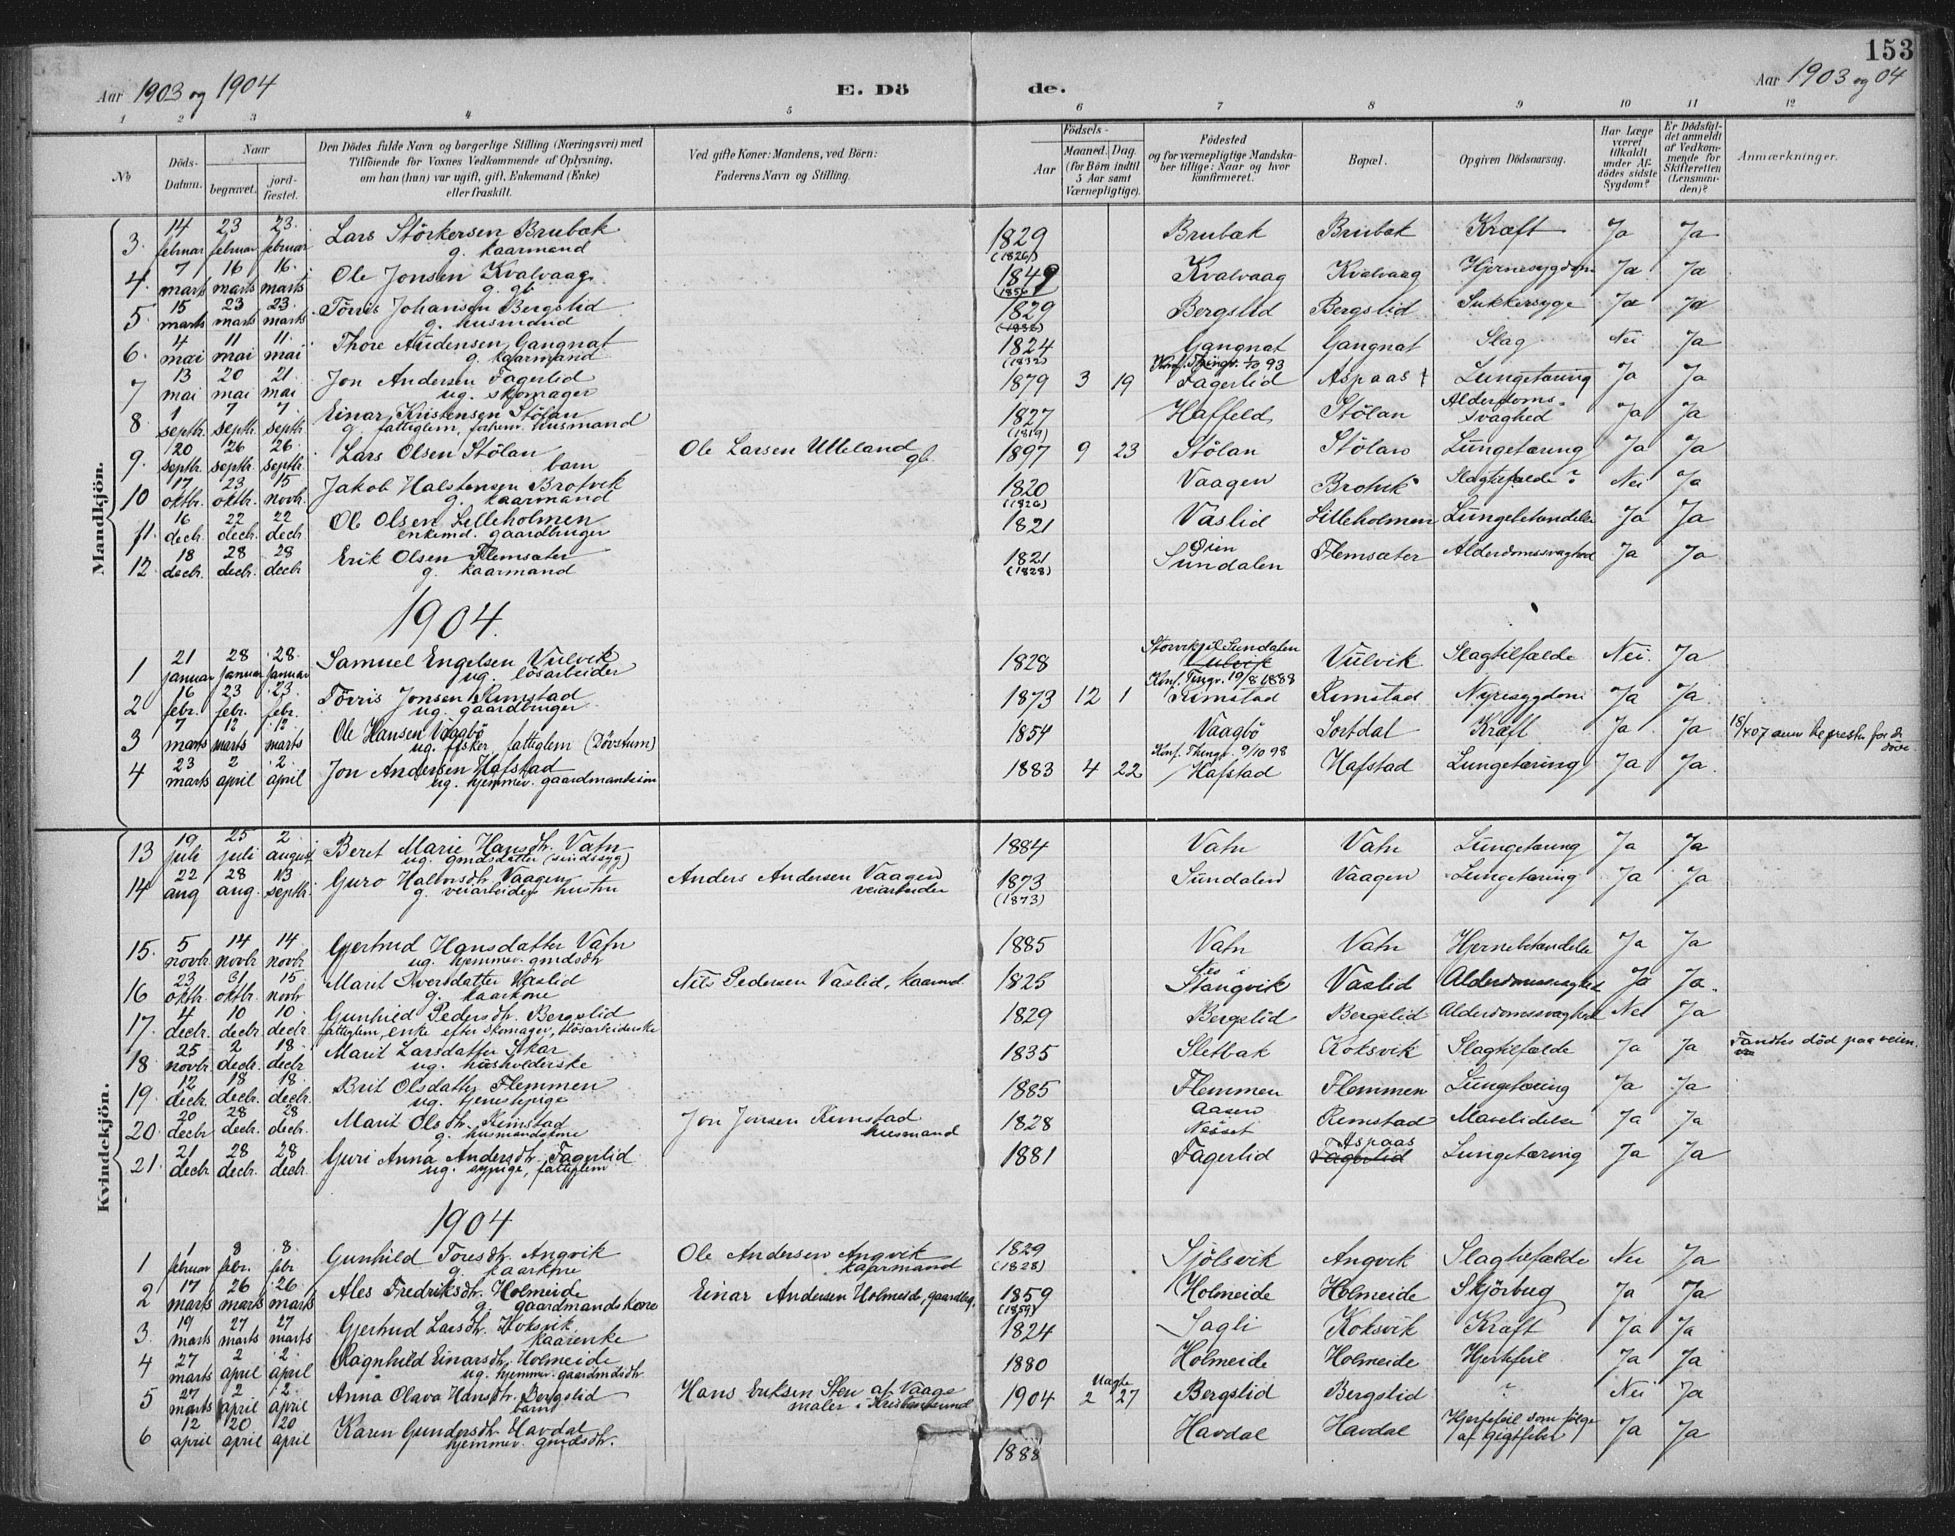 153
Aar 1903 og 1904 E. Dö de. Aar 1903 og 04
1 2 3 4 5 6 7 8 9 10 11 12
No Döds-Datum. Naar begravet. jordfæstet. Den Dödes fulde Navn og borgerlige Stilling (Næringsvei) med Tilföiende for Voxnes Vedkommende af Oplysning, om han (hun) var ugift, gift, Enkemand (Enke) eller fraskilt. Ved gifte Koner: Mandens, ved Börn: Faderens Navn og Stilling. Födsels- Aar Maaned. Dag. (for Börn indtil 5 Aar samt Værnepligtige). Födested og for værnepligtige Mandskaber tillige: Naar og hvor konfirmeret. Bopæl. Opgiven Dödsaarsag. Har Læge været tilkaldt under Afdödes sidste Sygdom? Er Dödsfaldet anmeldt af Vedkommende for Skifteretten (Lensmanden)? Anmærkninger.
Mandkjön.
3. 14 februar 23 februar 23 februar Lars Störkersen Brubæk g. kaarmand 1829 (1826) Brubæk Brubæk Kræft Ja Ja
4. 7 marts 16 marts 16. marts Ole Jonsen Kvalvaag g. gb. 1849 Kvalvaag Kvalvaag Hjernesygdom Ja Ja
5 15 marts 23 marts 23 marts Törris Johansen Bergslid g. husmand 1829 (1836) Bergslid Bergslid Sukkersyge Ja Ja
6. 4 mai 11 mai 11. mai Thore Audensen Gangnat g. kaarmand 1824 (1832) Gangnat Gangnat Slag Nei Ja
7 13 mai 20 mai 21 mai Jon Andersen Fagerlid ug. skomager 1879 3 19 Konf. Thingv. 1/10 93 Fagerlid Aspaas Lungetæring Ja Ja
8. 1 septbr. 7 septbr. 7 septbr. Einar Kristensen Stölan g. fattiglem, forhenv. husmand 1827 (1819) Haffeld Stölan Alderdomssvaghed Ja Ja
9. 20 septbr. 26 septbr. 26 septbr. Lars Olsen Stölan barn Ole Larsen Ulleland gb. 1897 9 23 Stölan Stölan Lungetæring Ja Ja
10 17 oktbr. 23 oktbr. 15 novbr. Jakob Halstensen Brotvik g. kaarmand 1820 (1826) Vaagen Brotvik Slagtilfælde ? Nei Ja
11. 16 decbr. 22 decbr. 22 decbr. Ole Olsen Lilleholmen enkemd. gaardbruger 1821 Vaslid Lilleholmen Lungebetændelse Ja Ja
12. 18 decbr. 28 decbr. 28 decbr Erik Olsen Flemsæter g. kaarmand 1821 (1828) Öien Sundalen Flemsæter Alderdomssvaghed Ja Ja
1904.
1 21 januar 28 januar 28. januar Samuel Engelsen Vulvik ug. lösarbeider 1828 Storvik i Sundalen Vulvik Slagtilfælde Nei. Ja
2 16 febr. 23 febr. 23. febr. Törris Jonsen Rimstad ug. gaardbruger 1873 12 1 Konf. Tingv. 19/8 1888 Rimstad Rimstad Nyresygdom Ja Ja
3 7 marts 12 marts 12. marts Ole Hansen Vaagbö ug. fisker, fattiglem (Dövstum) 1854 Vaagbö Soetdal Kræft Ja Ja
4 23 marts 2 april 2. april Jon Andersen Hafstad ug. hjemmev. gaardmandssön 1883 4 22 Konf. Thingv. 9/10 98 Hafstad Hafstad Lungetæring Ja Ja
Kvindekjön.
13 19 juli 25 juli 2 august Beret Marie Hansdtr. Vatn ug. gmdsdatter (sindssyg) 1884 Vatn Vatn Lungetæring Ja Ja
14 22 aug 28 aug. 13 septbr. Guro Halvorsdtr. Vaagen g. veiarbeiders hustru Anders Andersen Vaagen veiarbeider 1873 (1873) Sundalen Vaagen Lungetæring Ja Ja
15. 5 novbr. 14 novbr 14 novbr Gjertrud Hansdatter Vatn ug. hjemmev. gmdsdtr 1885 Vatn Vatn Hjernebetændelse Ja Ja
16 23 oktbr. 31 oktbr. 15 novbr Marit Iversdatter Vaslid g. kaarkone Nils Pedersen Vaslid, kaarmd. 1825 Nes i Stangvik Vaslid Alderdomssvaghed Ja Ja.
17. 4 decbr. 10 decbr. 10 decbr. Gunhild Pedersdtr. Bergslid fattiglem, enke efter skomager, lösarbeiderske 1829 Bergslid Bergslid Alderdomssvaghed Nei Ja
18. 25 novbr. 2 decbr. 18 decbr Marit Larsdatter Skar ug. husholderske 1835 Sletbak Koksvik Slagtilfælde Ja Ja Fandtes död paa veien.
19. 12 decbr. 18 decbr. 18. decbr. Brit Olsdatter Flemmen ug. tjenestepige 1885 Flemmen Flemmen Lungetæring Ja Ja
20. 20 decbr 28 decbr. 28 decbr. Marit Olsdtr. Rimstad g. husmandskone Jon Jonsen Rimstad husmand 1828 Aasen Nesset Rimstad Mavelidelse Ja Ja
21. 21 decbr 28 decbr. 28 decbr. Guri Anna Andersdtr. Fagerlid ug. sypige, fattiglem 1881 Fagerlid Aspaas Fagerlid Lungetæring Ja Ja
1904
1 1 februar 8 febr. 8. febr Gunhild Toresdtr. Angvik g. kaarkone Ole Andersen Angvik kaarmand 1829 (1828) Sjölsvik Angvik Slagtilfælde Nei Ja
2 17 marts 26 marts 26. marts Ales Fredriksdtr. Holmeide g. gaardmandskone Einar Andersen Holmeide, gaardbrg. 1859 (1859) Holmeide Holmeide Skjörbug Ja Ja
3. 19 marts 27 marts 27 marts Gjertrud Larsdtr. Koksvik kaarenke 1824 Sagli Koksvik Kræft Ja Ja
4 27 marts 2 april 2. april Ragnhild Einarsdtr. Holmeide ug. hjemmev. gaardmdsdtr. 1880 Holmeide Holmeide Hjertefeil Ja Ja
5 27 marts 2 april 2. april Anna Olava Hansdtr. Bergslid barn Hans Eriksen Sten af Vaage maler i Kristiansund 1904 Uægte 2 27 Bergslid Bergslid ? Nei Ja
6 12 april 20 april 20 april Karen Gundersdtr. Havdal hjemmev. gmdsdtr. 1888 Havdal Havdal Hjertefeil som fölge af Gigtfeber Ja Ja